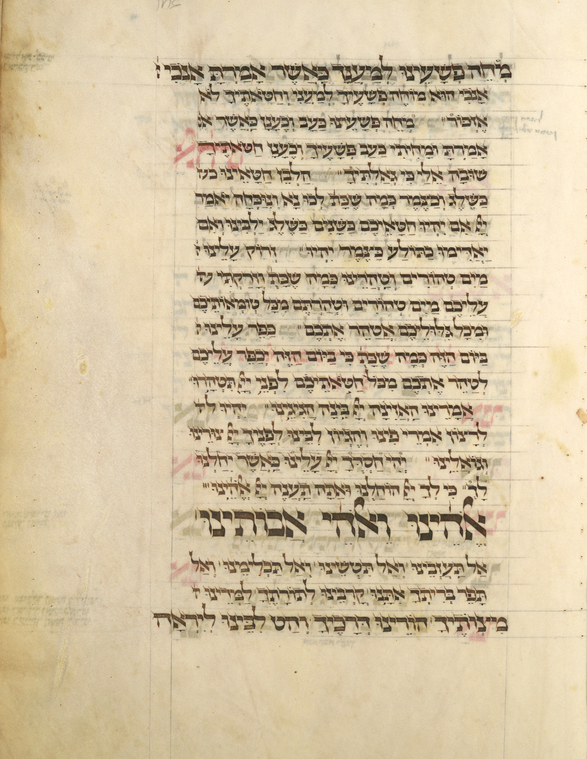 מחה פשעינו למענך כאשר אמרת אנכי
אנכי הוא מוחה פשעיך למעני וחטאתיך לא
אזכור מחה פשעינו כעב וכענן כאשר א
אמרת ומחיתי כעב פשעיך וכענן חטאתיך
שובה אלי כי גאלתיך הלבן חטאינו כ
כשלג וכצמר כמה שכתוב לכו נא ונוכחה יאמר
יי אם יהיו חטאיכם כשנים כשלג ילבינו ואם
יאדימו כתולע כצמר יהיו זרוק עלינו
מים טהורים וטהרינו כמה שכת וזרקתי על
עליכם מים טהורים וטהרתם מכל טומאותיכם
ומכל גלוליכם אטהר אתכם כפר עלינו
ביום הזה כמה שכת כי ביום הזה יכפר עליכם
לטהר אתכם מכל חטאתיכם לפני יי תטהרו
אמרינו האזינה יי בינה הגיגינו יהיו לר
לרצון אמרי פינו והגיון לבינו לפניך יי צורינו
וגואלינו יהי חסדך יי עלינו כאשר יחלנו
לך כי לך יי הוחלנו ואתה תענה יי אלהינו
אלהינו ואלהי אבותינו
אל תעזבינו ואל תטשינו ואל תכלימינו ואל
תפר בריתך אתנו קרבינו לתורתך למדינו
מצותיך הורינו דרכיך והט לבינו ליראה